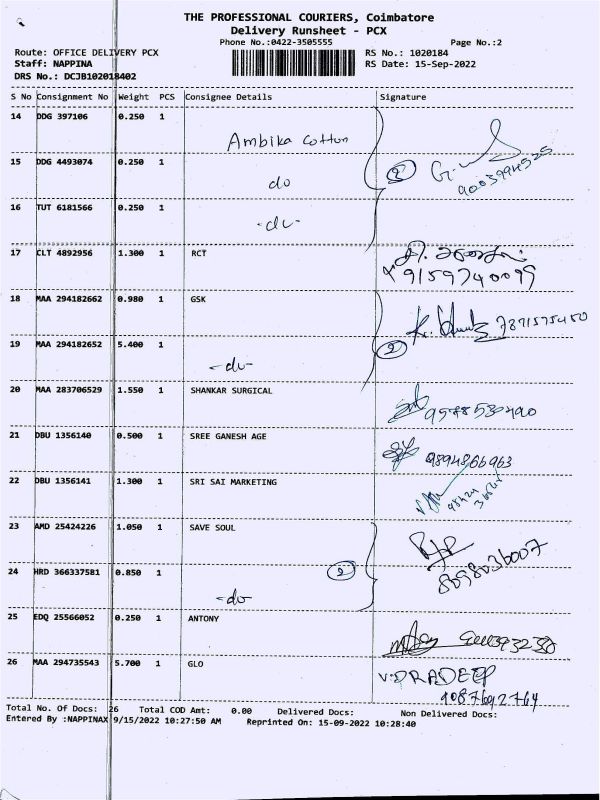 THE PROFESSIONAL COURIERS, Coimbatore
Delivery Runsheet - PCX
Phone No.:0422-3505555 Page No.:2
Route: OFFICE DELIVERY PCX RS No.: 1020184
Staff: NAPPINA RS Date: 15-Sep-2022
DRS No.: DCJB102018402
S No Consignment No Weight PCS Consignee Details Signature
14 DDG 397106 0.250 1
Ambika Cotton
15 DDG 4493074 0.250 1
do 2 9003994525
16 TUT 6181566 0.250 1
-do-
17 CLT 4892956 1.300 1 RCT
9159740099
18 MAA 294182662 0.980 1 GSK
7871575450
19 MAA 294182652 5.400 1
-do- 2
20 MAA 283706529 1.550 1 SHANKAR SURGICAL
9578530490
21 DBU 1356140 0.500 1 SREE GANESH AGE
9894866963
22 DBU 1356141 1.300 1 SRI SAI MARKETING
23 AMD 25424226 1.050 1 SAVE SOUL
8098036007
24 HRD 366337581 0.850 1 2
-do-
25 EDQ 25566052 0.250 1 ANTONY
26 MAA 294735543 5.700 1 GLO
V.PRADEEP
Total No. Of Docs: 26 Total COD Amt: 0.00 Delivered Docs: Non Delivered Docs:
Entered By :NAPPINAX 9/15/2022 10:27:50 AM Reprinted On: 15-09-2022 10:28:40